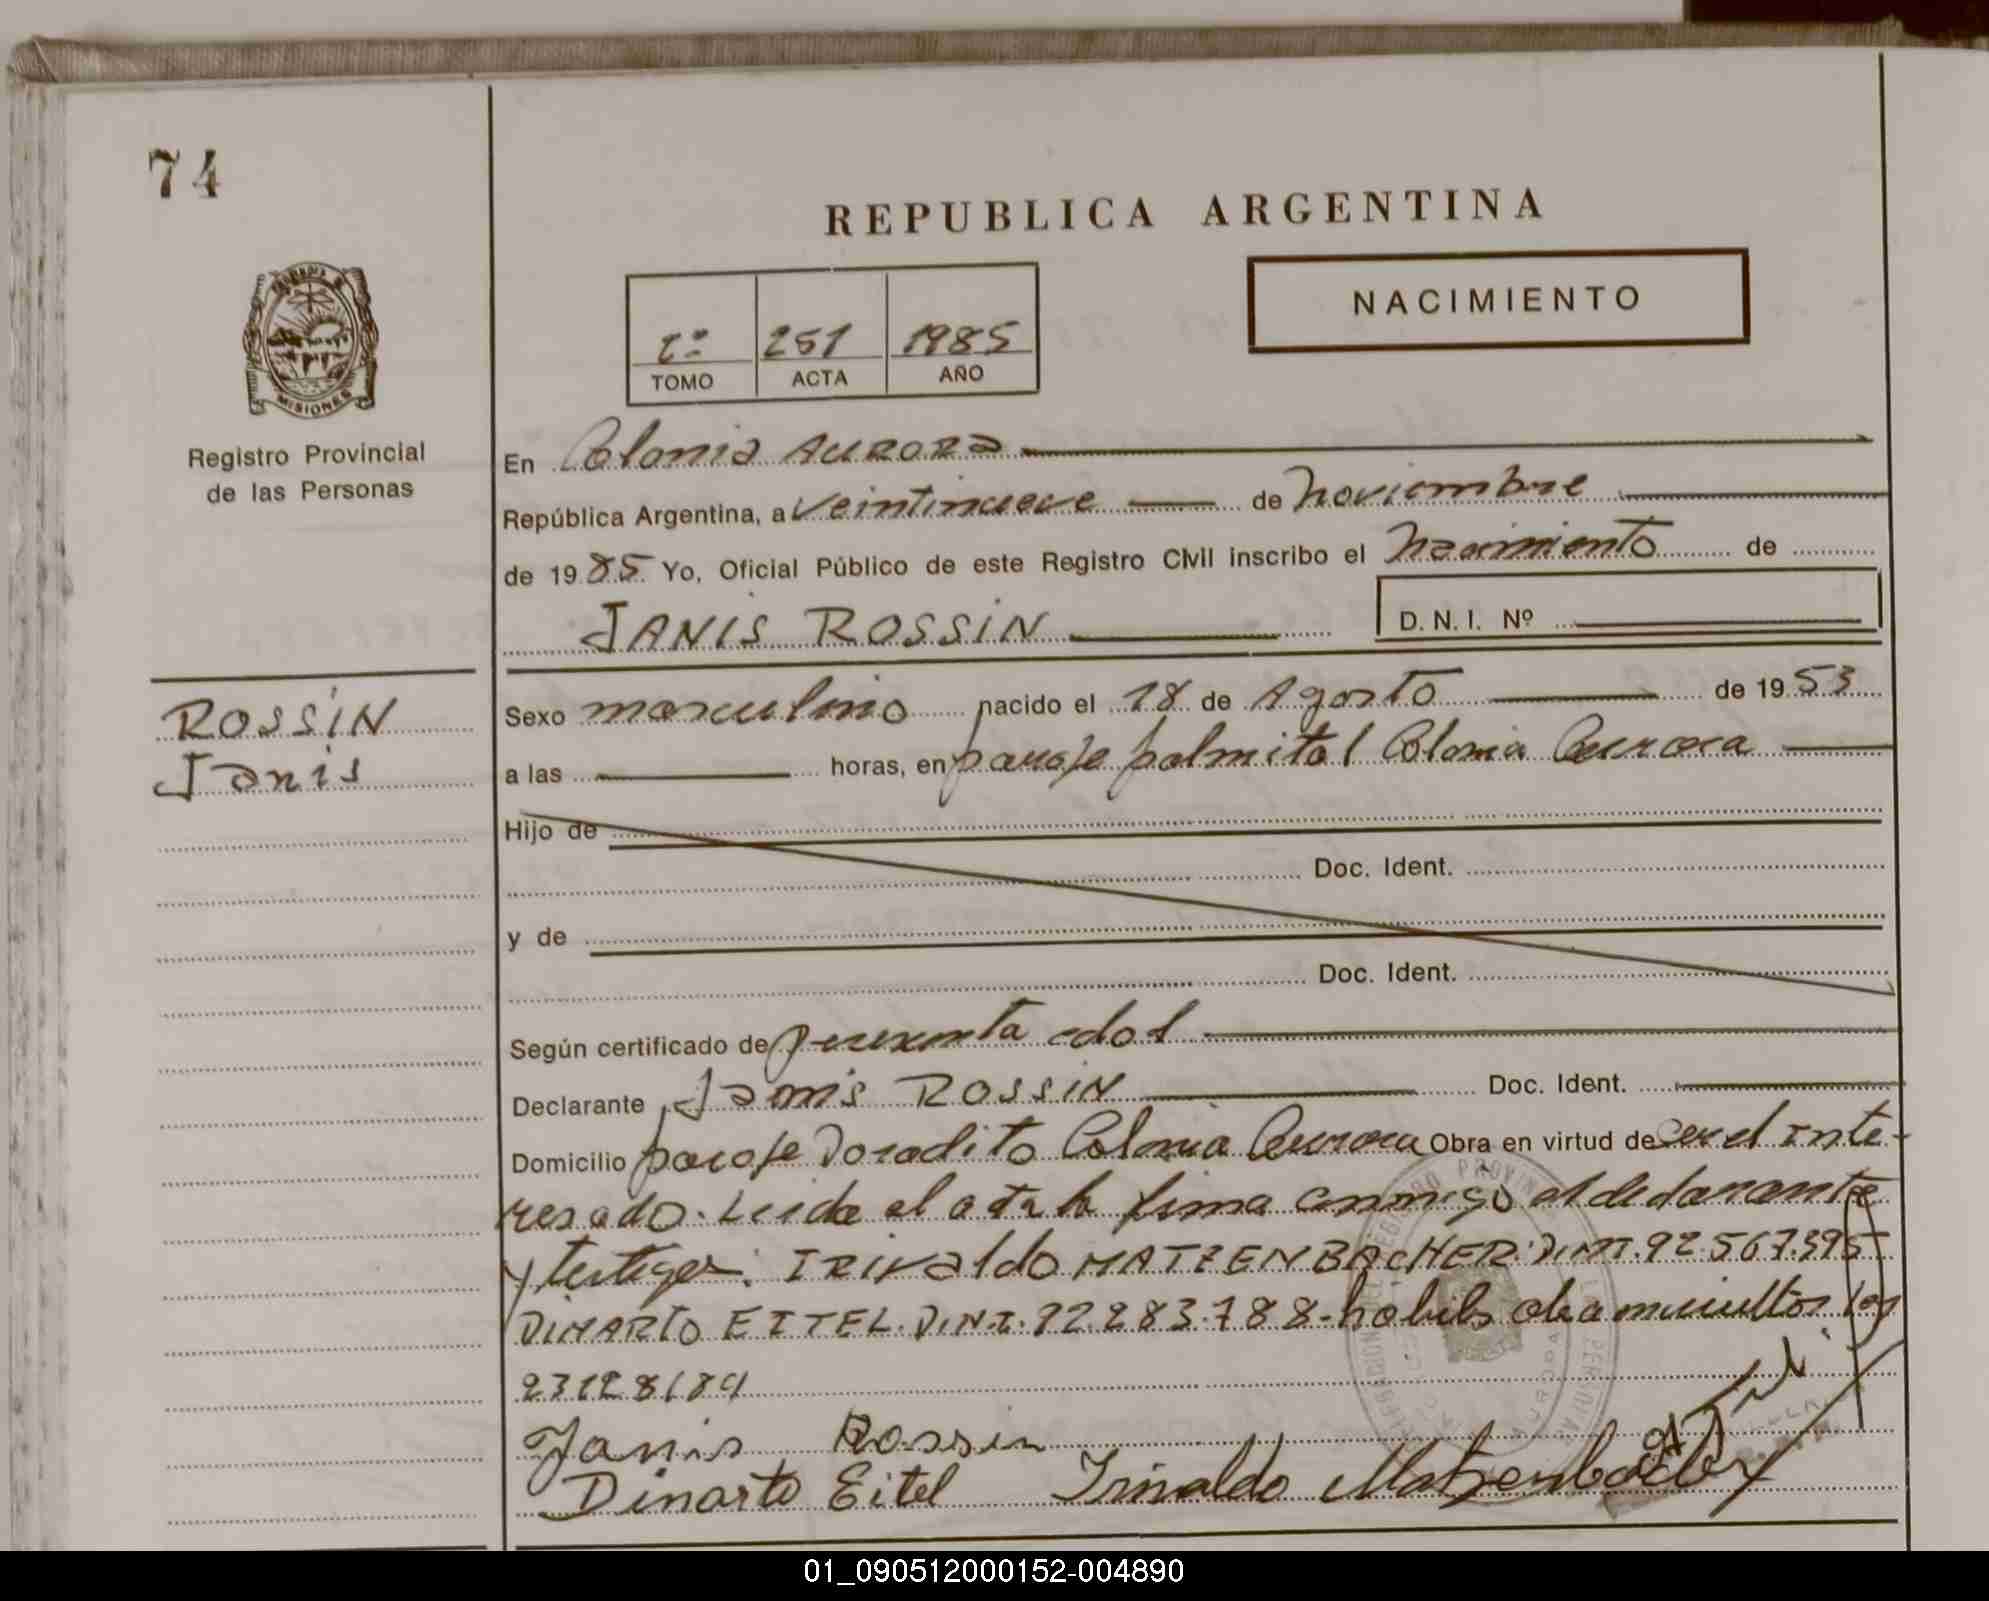 74
REPUBLICA ARGENTINA
NACIMIENTO
251 1985
TOMO ACTA AÑO
MISIONES
Registro Provincial
de las Personas
En Colonia AURORA
República Argentina, a veintinueve de noviembre
de 1985 Yo, Oficial Público de este Registro Civil inscribo el nacimiento de
JANIS ROSSIN
D. N. I. Nº
ROSSIN
Janis
Sexo masculino nacido el 18 de Agosto de 1953
a las horas, en paraje palmital Colonia Aurora
Hijo de
Doc. Ident.
y de
Doc. Ident.
Según certificado de presunta edad
Declarante Janis ROSSIN Doc. Ident.
Domicilio paraje Doradito Colonia Aurora Obra en virtud de ser el inte-
resado. Leida el acta la firma conmigo el declarante
y testigos: IRIVALDO MATZENBACHER D.N.I. 92.567.395
DINARTO EITEL. D.N.I. 92.283.788-
Janis Rossin
Dinarto Eitel Irivaldo Matzenbacher
01_090512000152-004890